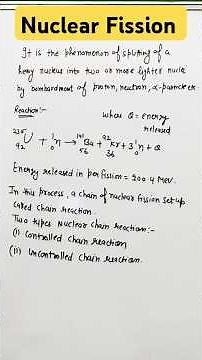 Nuclear Fission
It is the phenomenon of spliting of a
heavy nucleus into two or more lighter nuclei
by bombardment of proton, neutron, α-particle etc.
Reaction:- where Q = energy
released
²³⁵₉₂U + ¹₀n → ¹⁴¹₅₆Ba + ⁹²₃₆Kr + 3¹₀n + Q
Energy released in per fission = 200.4 Mev.
In this process, a chain of nuclear fission set up
called chain reaction.
Two types Nuclear chain reaction:-
(i) Controlled chain reaction
(ii) Uncontrolled chain reaction.